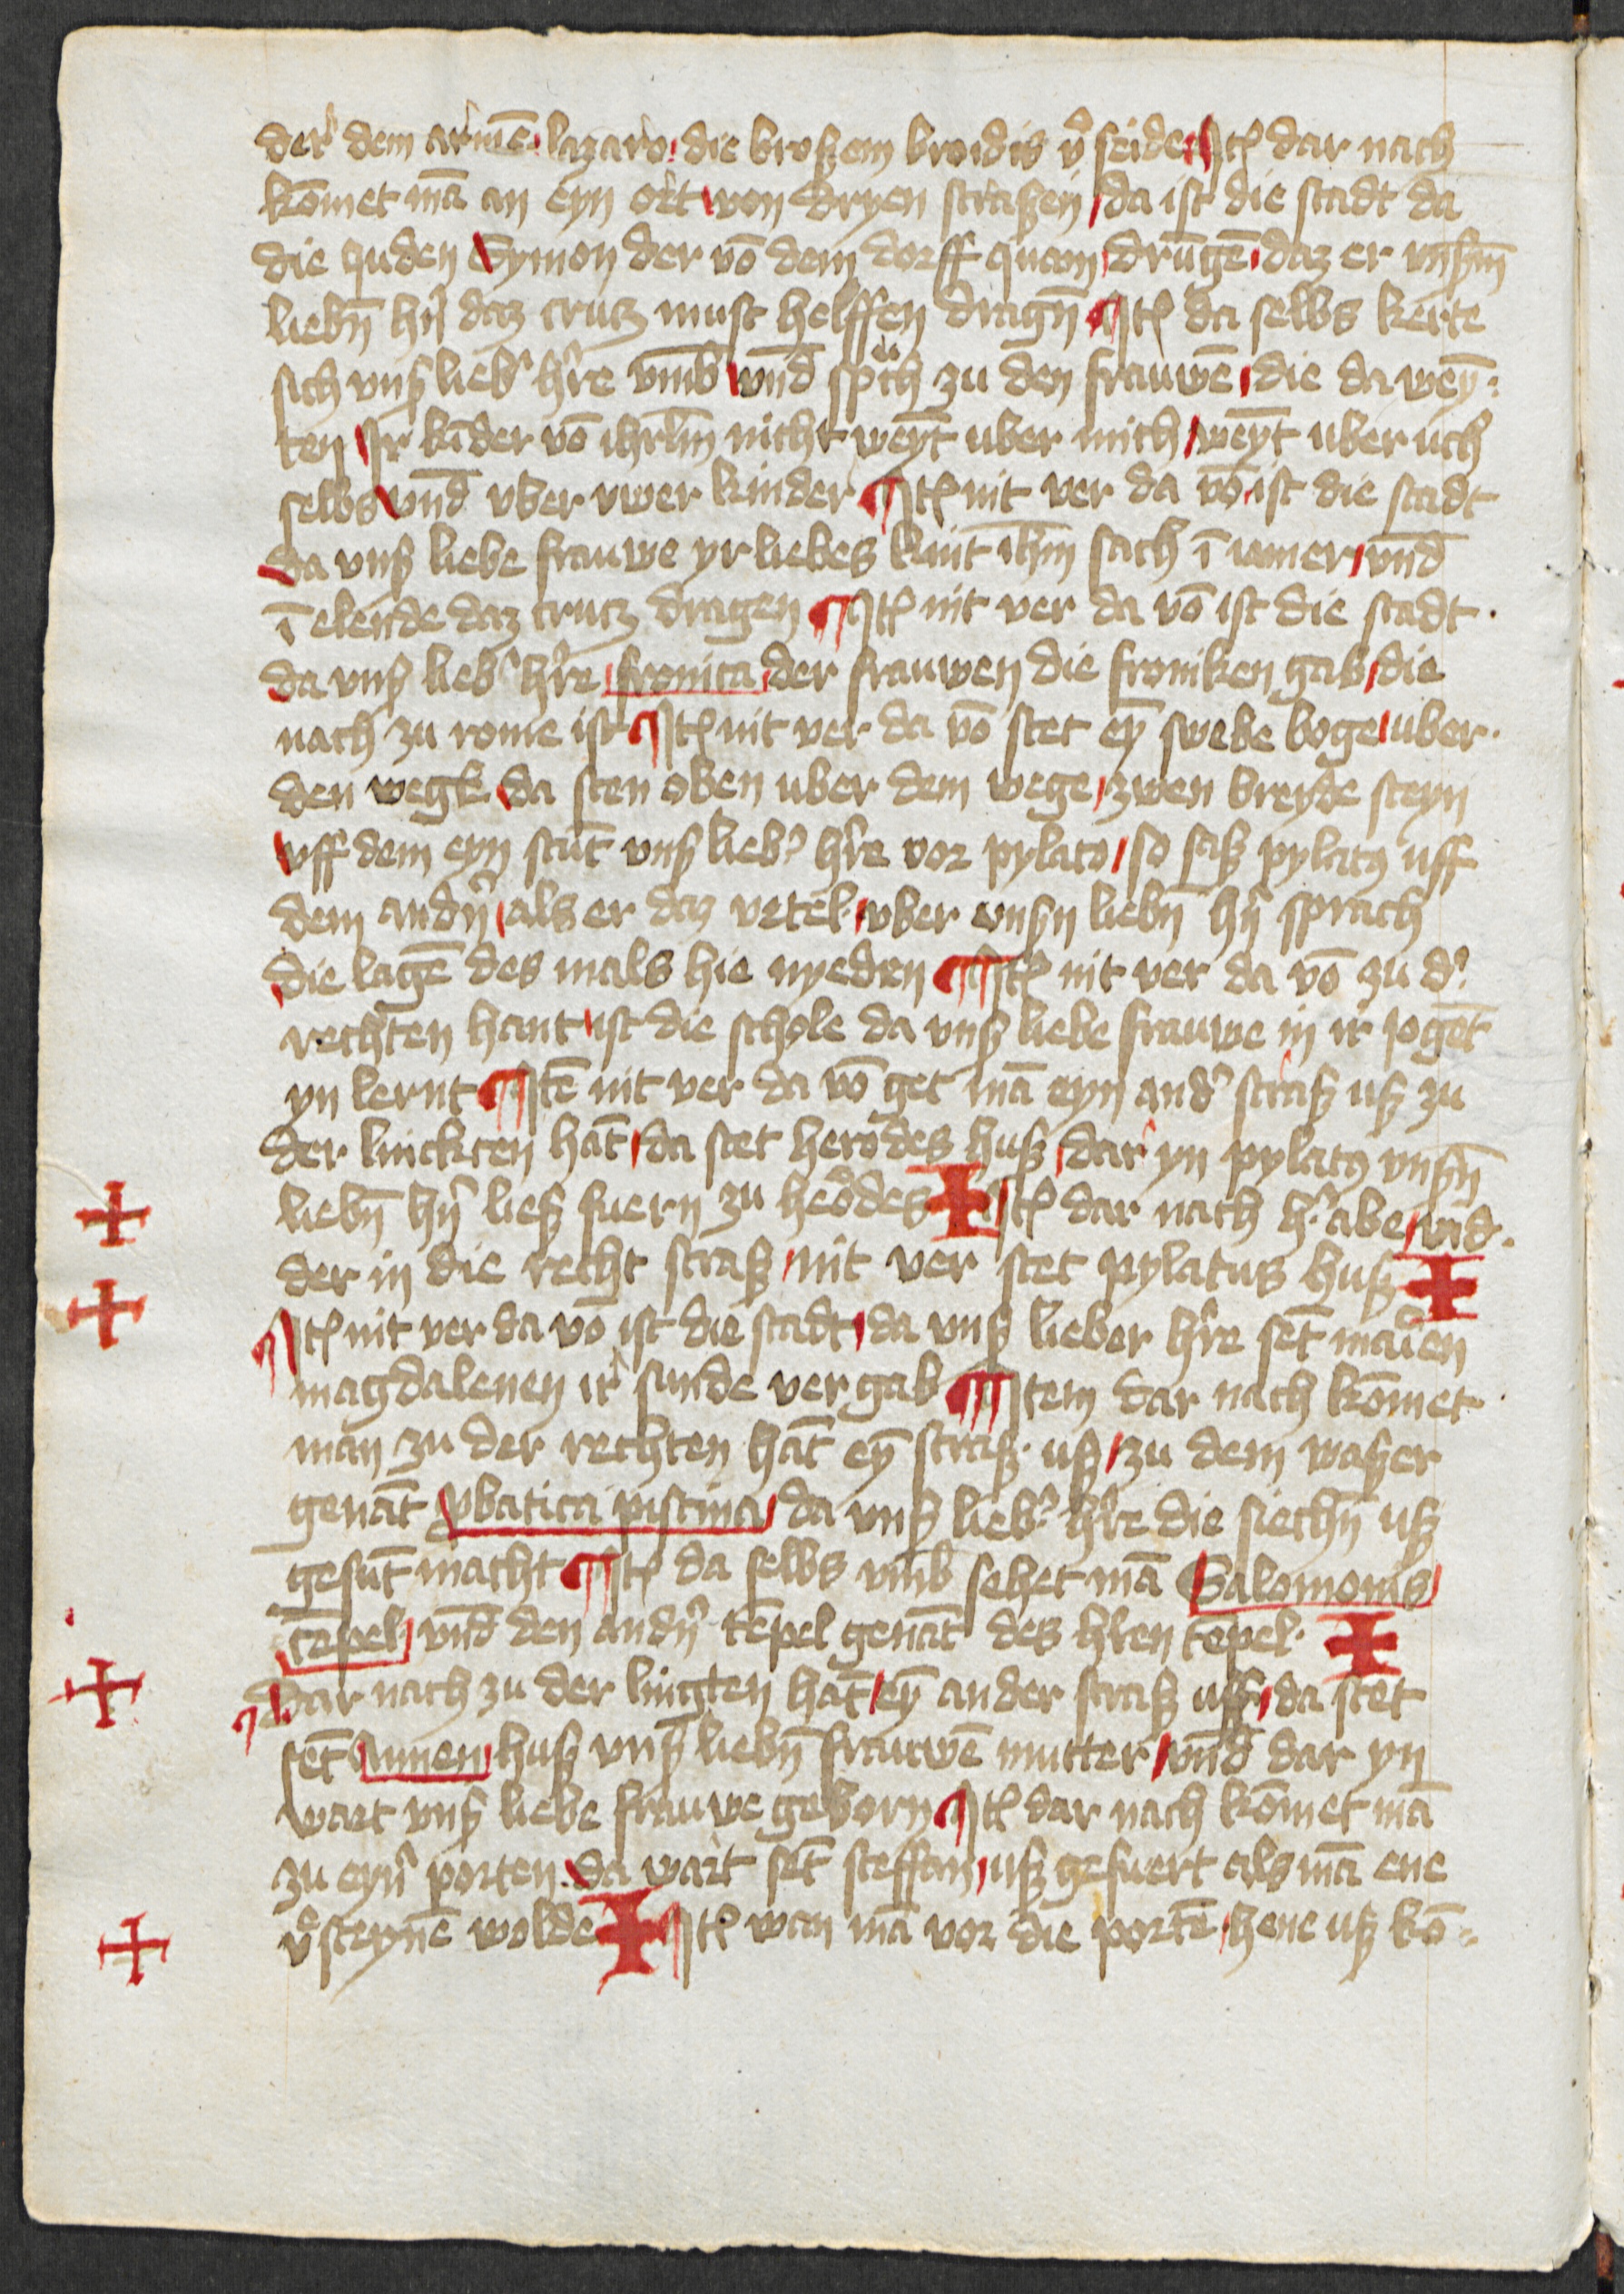 der dem armē lazaro die broszem broidis v͛seide Itē dar nach
kōmet mā an eyn ort von dryen straszen da ist die stadt da
die Juden Symon der vō dem dorff quam drungē daz er vnszm
liebn̄ hrn̄ daz crutz must helffen dragn̄ Itē da selbs kerte
sich vnsz lieb͛ hr̄e vmb vnd sprach zu den frauwē die da wey̅-
ten Ir kīder vō ihrl̄m nicht weyt uber mich weyt uber uch
selbs vnd vber uwer kinder Itē nit ver da vō ist die stadt
da vnsz liebe frauwe yr liebes kint ih̄m sach ī iamer vnd
ī elende daz crutz dragen Itē nit ver da vō ist die stadt
da vnsz lieb͛ hr̄e fronica der frauwen die froniken gab die
nach zu rome ist Itē nit ver da vō stet ey̅ swebe boge uber
den wegk da sten oben uber dem wege zwen breyde steyn
vff dem eyn stūt vnsz lieb͛ hr̄e vor pylato so sasz pylatꝰ uff
dem andn͛ als er daz vrtel vber vnszn liebn̄ hrn̄ sprach
die lagē des mals hie nyeden Itē nit ver da vō zu d͛
rechten hant ist die schole da vnsz liebe frauwe in ir Jogēt
yn lernt Itē nit ver da vō get mā eyn and͛ strasz usz zu
der linckten hāt da stet herodes husz dar yn pylatꝰ vnszn̄
liebn̄ hrn̄ liesz fuern zu heodes Itē dar nach h͛ abe wid-
der in die recht strasz nit ver stet pylatus husz
Itē nit ver da vō ist die stadt da vnsz lieber hr̄e sēt maien
magdalenen ir sunde ver gab Item dar nach kōmet
man zu der rechten hāt ey̅ strasz usz zu dem waszer
genāt pbatica piscina da vnsz lieb͛ hr̄e die siechn̄ usz
gesūt macht Itē da selbs vmb sehet mā Salomonis
tēpel vnd den andn͛ tēpel genāt des hr̄en tēpel
Dar nach zu der lingten hāt ey̅ ander strasz usz da stet
sēt Annen husz vnsz liebn̄ frauwē mutter vnd dar yn
wart vnsz liebe frauwe geborn Itē dar nach kōmet mā
zu eyn͛ porten da wart sēt steffan usz gefuert als mā ene
v͛steynē wolde Itē wan mā vor die portē hene usz kō-